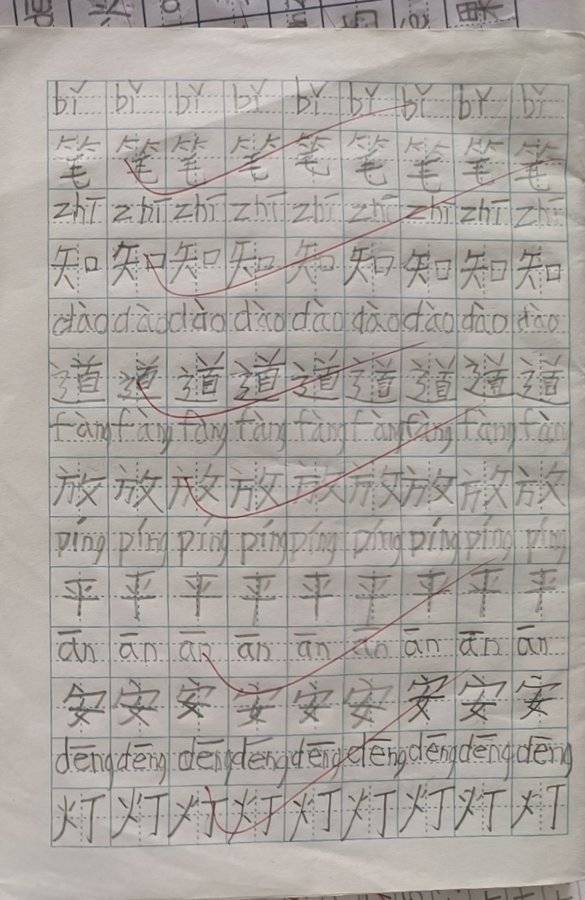 bǐ bǐ bǐ bǐ bǐ bǐ bǐ bǐ bǐ
笔 笔 笔 笔 笔 笔 笔 笔 笔
zhī zhī zhī zhī zhī zhī zhī zhī zhī
知 知 知 知 知 知 知 知 知
dào dào dào dào dào dào dào dào dào
道 道 道 道 道 道 道 道 道
fàng fàng fàng fàng fàng fàng fàng fàng fàng
放 放 放 放 放 放 放 放 放
píng píng píng píng píng píng píng píng píng
平 平 平 平 平 平 平 平 平
ān ān ān ān ān ān ān ān ān
安 安 安 安 安 安 安 安 安
dēng dēng dēng dēng dēng dēng dēng dēng dēng
灯 灯 灯 灯 灯 灯 灯 灯 灯